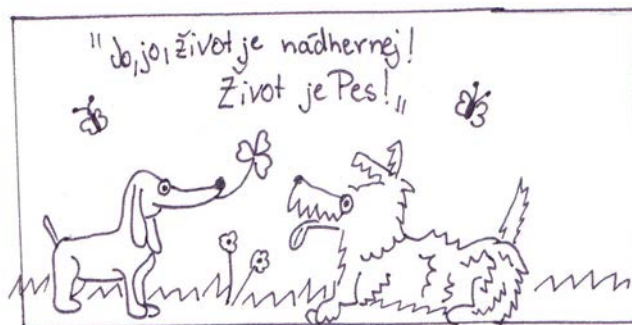 "Jo, jo, život je nádhernej!
Život je Pes!"